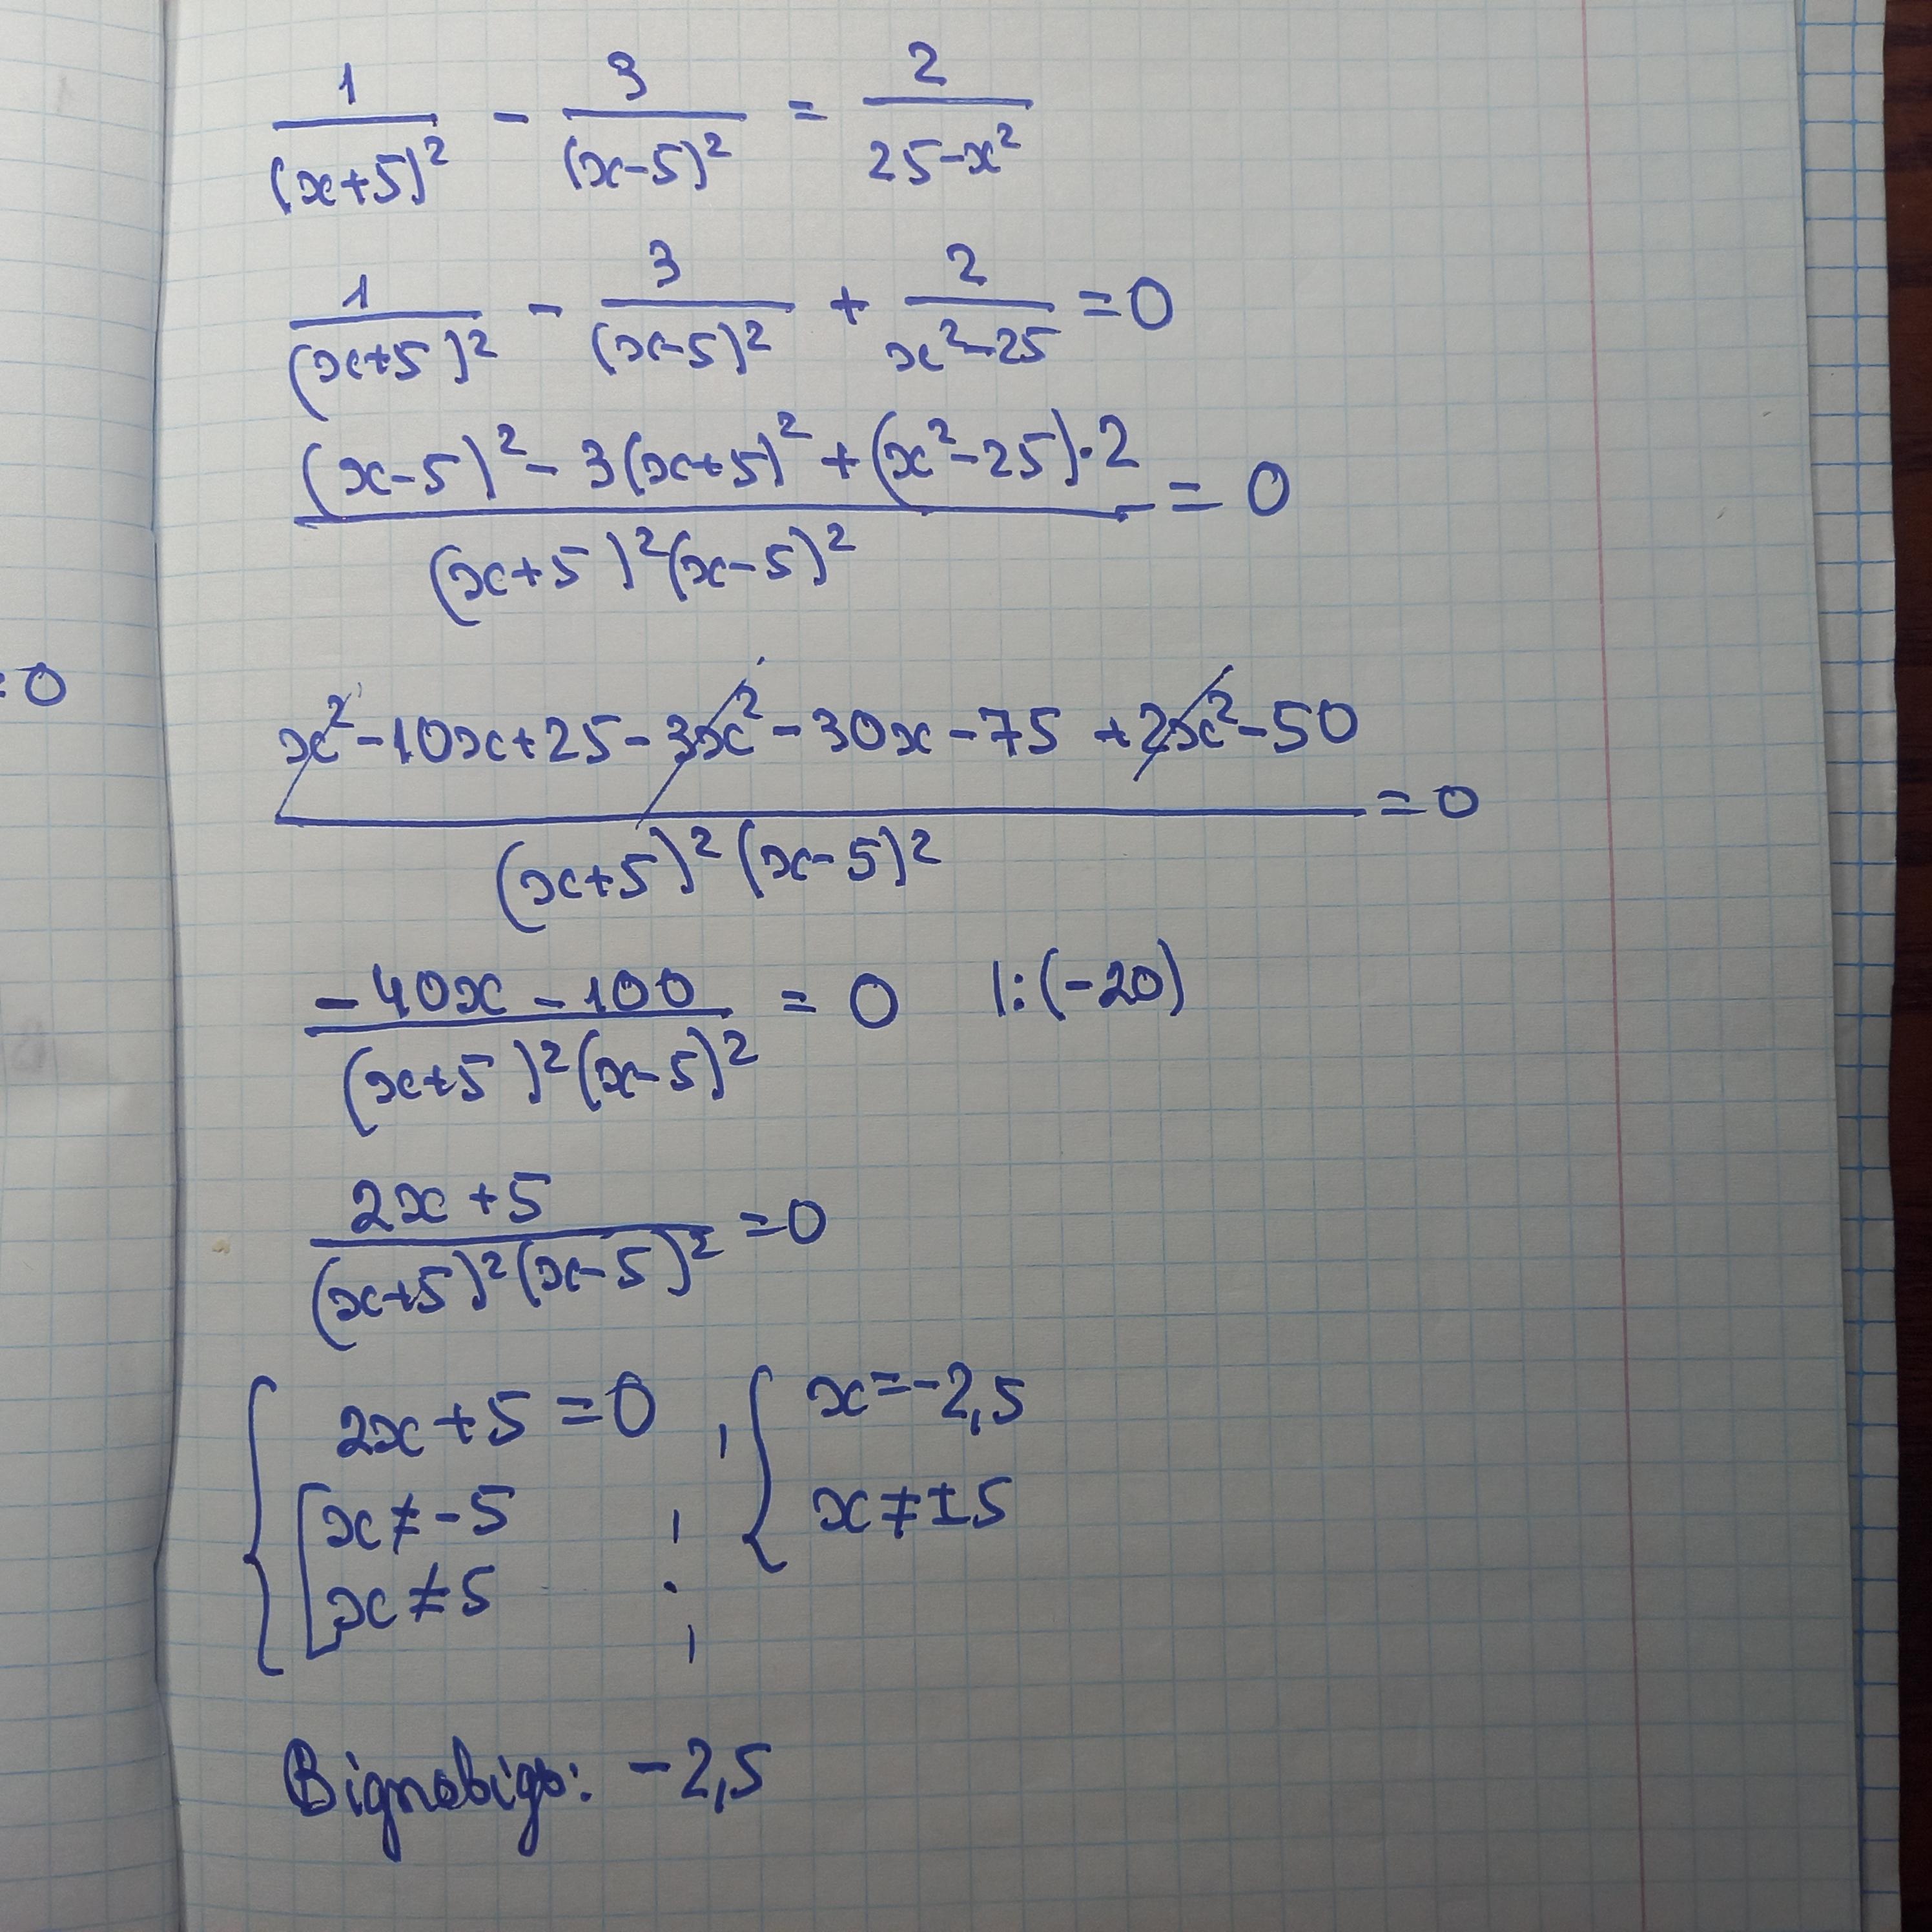 1/(x+5)² - 3/(x-5)² = 2/(25-x²)
1/(x+5)² - 3/(x-5)² + 2/(x²-25) =0
((x-5)² - 3(x+5)² + (x²-25)·2)/((x+5)²(x-5)²) = 0
:0
(x²-10x+25-3x²-30x-75+2x²-50)/((x+5)²(x-5)²) =0
(-40x-100)/((x+5)²(x-5)²) = 0 |:(-20)
(2x+5)/((x+5)²(x-5)²) =0
{ 2x+5=0 , { x=-2,5
[ x≠-5 , x≠±5
x≠5 ;
Відповідь: -2,5